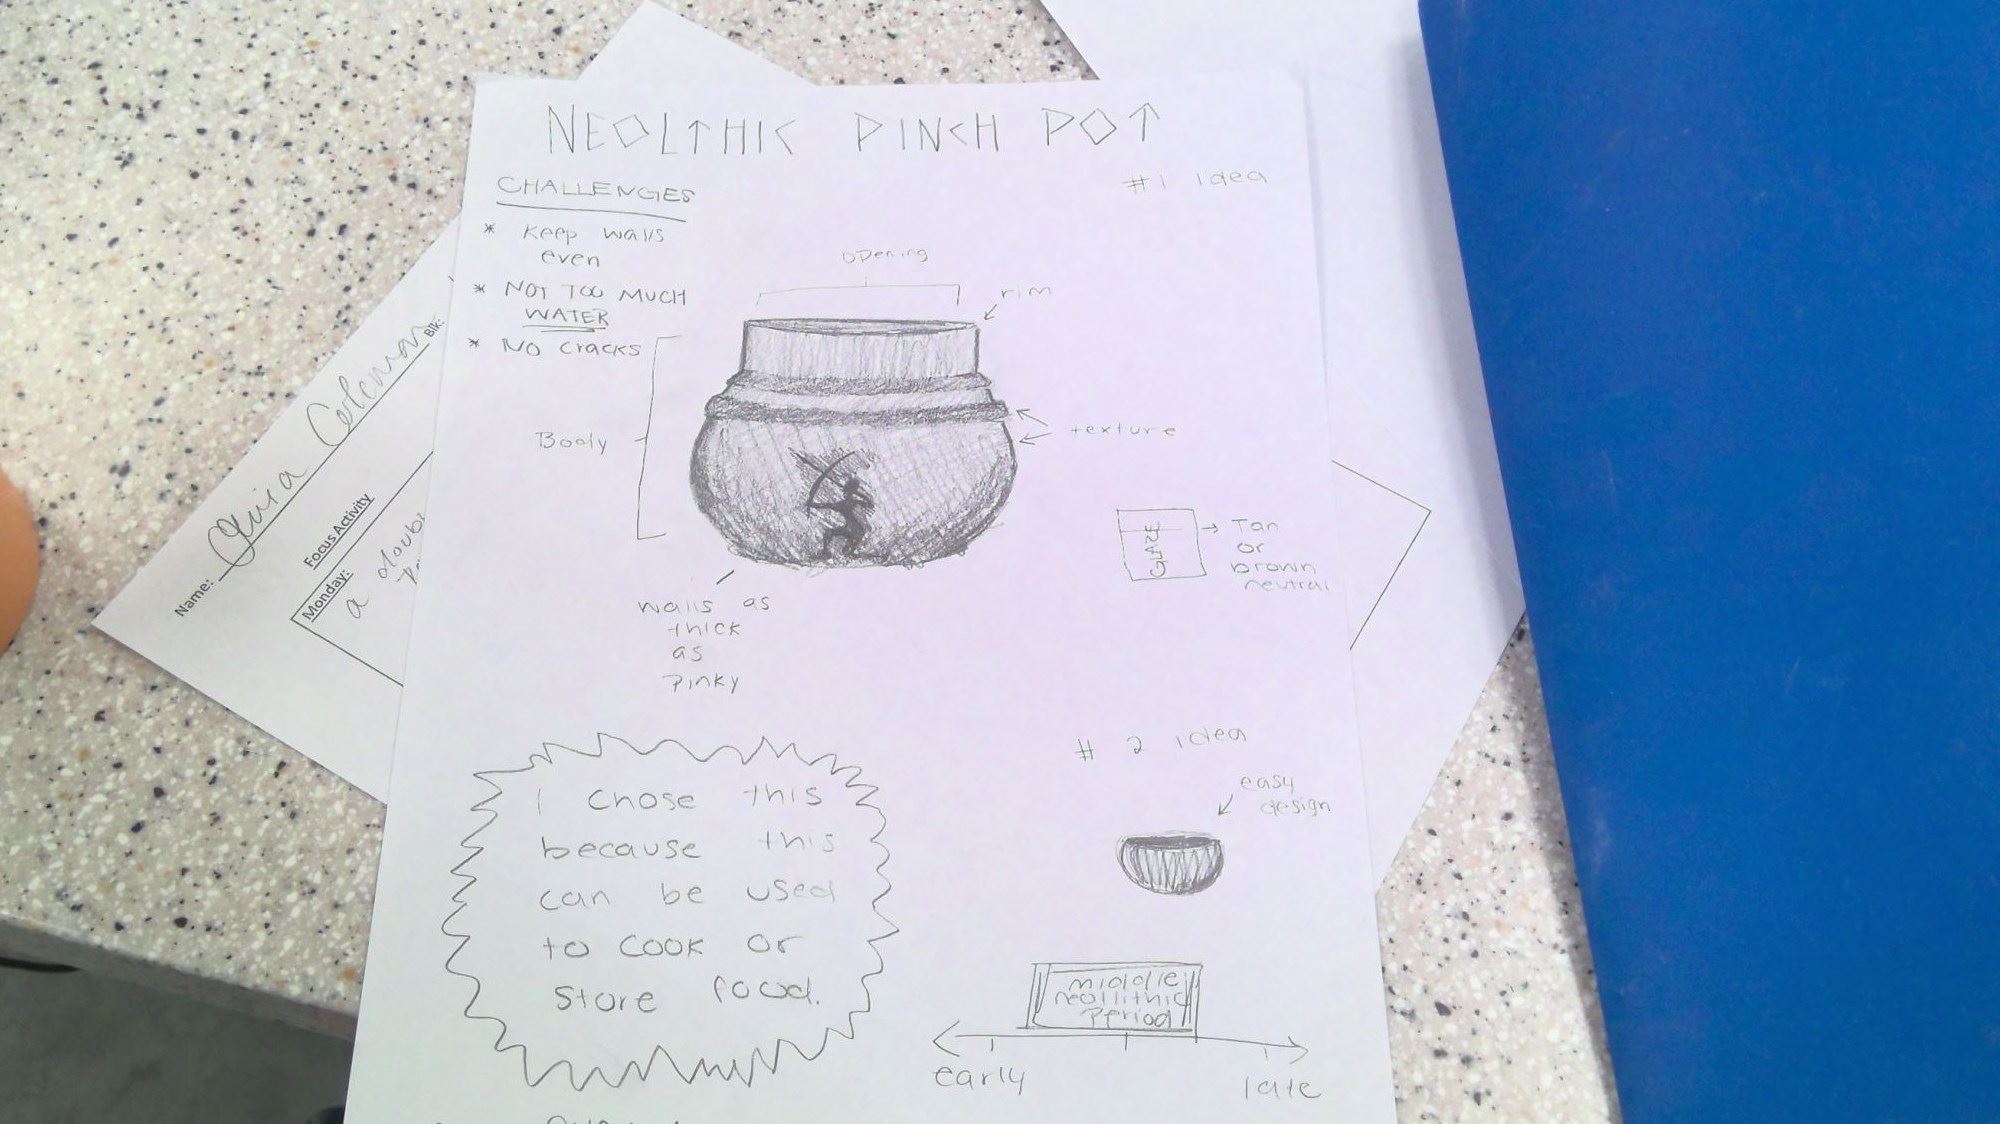 NEOLTHIC PINCH POT
#1 idea
CHALLENGES
* Keep walls
even
* NOT TOO MUCH
WATER
* NO cracks
opening
rim
Body
texture
GLAZE
Tan
or
brown
neutral
walls as
thick
as
pinky
I chose this
because this
can be used
to cook or
store food.
# 2 idea
easy
design
middle
neollithic
period
early
late
Name: Coleman
Blk:
Focus Activity
Monday:
a